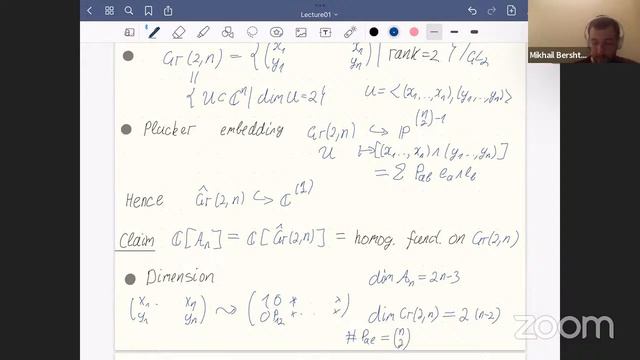 Lecture01
Mikhail Bersht...
Gr(2,n) = { (x₁ x₂ / y₁ yₙ) | rank=2 } / GL₂
= { U ⊂ ℂⁿ | dim U=2 } U = <(x₁,..,xₙ),(y₁,..,yₙ)>
Plucker embedding Gr(2,n) ↪ ℙ^{(n 2)-1}
U ↦ [(x₁,..,xₙ)∧(y₁,..,yₙ)]
= Σ Pab ea∧eb
Hence Ĝr(2,n) ↪ ℂ^{(1)}
Claim ℂ[Aₙ] = ℂ[Ĝr(2,n)] = homog. fund. on Gr(2,n)
Dimension dim Aₙ = 2n-3
(x₁ · xₙ / y₁ yₙ) ⇝ (1 0 * · · × / 0 P₁₂ × · · ×) dim Gr(2,n) = 2(n-2)
# Pae = (n 2)
zoom